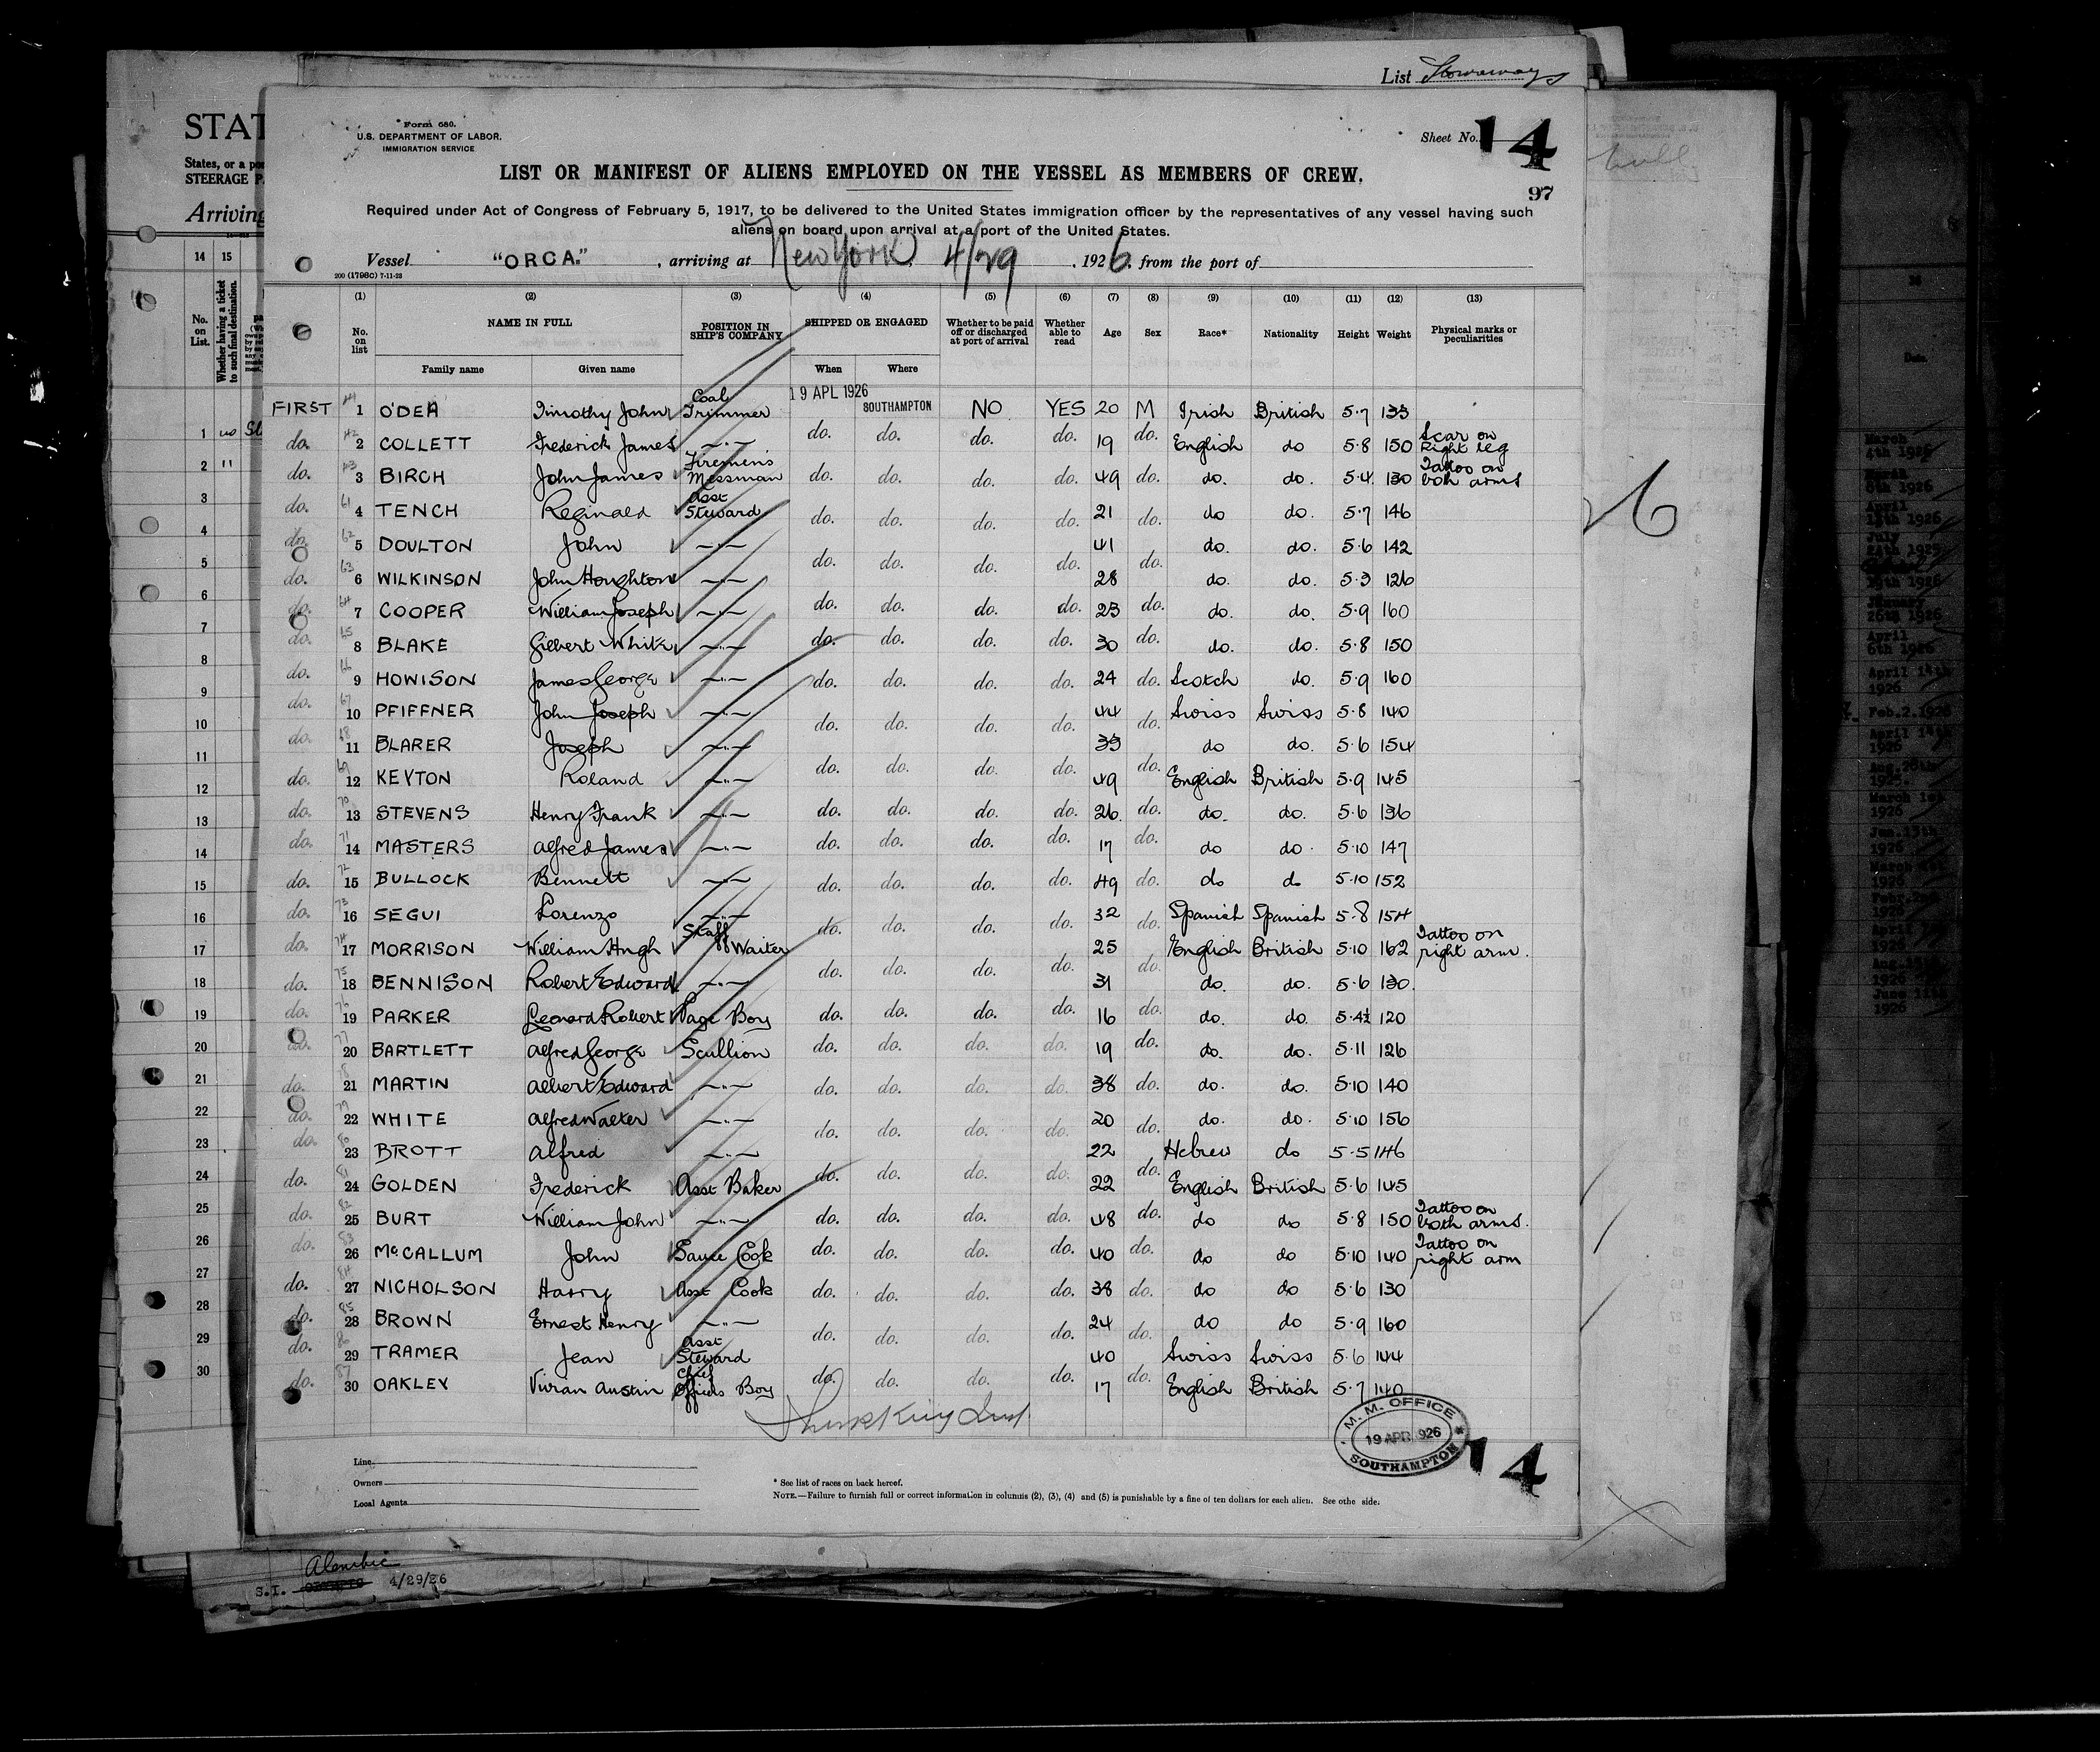 List Stowaways
Form 680.
U.S. DEPARTMENT OF LABOR.
IMMIGRATION SERVICE
Sheet No. 14
97
LIST OR MANIFEST OF ALIENS EMPLOYED ON THE VESSEL AS MEMBERS OF CREW.
Required under Act of Congress of February 5, 1917, to be delivered to the United States immigration officer by the representatives of any vessel having such
aliens on board upon arrival at a port of the United States.
Vessel "ORCA." , arriving at New York 4/29 , 1926, from the port of
200 (1798C) 7-11-23
(1) (2) (3) (4) (5) (6) (7) (8) (9) (10) (11) (12) (13)
No. on list NAME IN FULL POSITION IN SHIP'S COMPANY SHIPPED OR ENGAGED Whether to be paid off or discharged at port of arrival Whether able to read Age Sex Race* Nationality Height Weight Physical marks or peculiarities
Family name Given name When Where
FIRST 1 O'DEA Timothy John Coal Trimmer 19 APL 1926 SOUTHAMPTON NO YES 20 M Irish British 5·7 133
do. 42 2 COLLETT Frederick James —"— do. do. do. do. 19 do. English do 5·8 150 Scar on Right leg
do. 43 3 BIRCH John James Firemen's Messman do. do. do. do. 49 do. do. do. 5·4 130 Tattoo on both arms
do. 61 4 TENCH Reginald Asst Steward do. do. do. do. 21 do. do do. 5·7 146
do. 62 5 DOULTON John —"— 41 do. do. 5·6 142
do. 63 6 WILKINSON John Houghton —"— do. do. do. do. 28 do. do. do. 5·3 126
do. 64 7 COOPER William Joseph —"— do. do. do. do. 23 do. do. do. 5·9 160
do. 65 8 BLAKE Gilbert White —"— do. do. do. do. 30 do. do. do. 5·8 150
do. 66 9 HOWISON James George —"— do. do. do. do. 24 do. Scotch do. 5·9 160
do. 67 10 PFIFFNER John Joseph —"— do. do. do. do. 44 do. Swiss Swiss 5·8 140
do. 68 11 BLARER Joseph —"— 33 do do. 5·6 154
do. 69 12 KEYTON Roland —"— do. do. do. do. 49 do. English British 5·9 145
do. 70 13 STEVENS Henry Frank —"— do. do. do. do. 26. do. do. do. 5·6 136
do. 71 14 MASTERS Alfred James —"— do. do. do. do. 17 do. do do. 5·10 147
do. 72 15 BULLOCK Bennett —"— do. do. do. do. 49 do. do do 5·10 152
do. 73 16 SEGUI Lorenzo —"— do. do. do. do. 32 do. Spanish Spanish 5·8 154
do. 74 17 MORRISON William Hugh Staff Waiter 25 English British 5·10 162 Tattoo on right arm.
do. 75 18 BENNISON Robert Edward —"— do. do. do. do. 31 do. do. do. 5·6 130.
do. 76 19 PARKER Leonard Robert Page Boy do. do. do. do. 16 do. do. do. 5·4½ 120
do. 77 20 BARTLETT Alfred George Scullion do. do. do. do. 19 do. do. do. 5·11 126
do. 78 21 MARTIN Albert Edward —"— do. do. do. do. 38 do. do. do. 5·10 140
do. 79 22 WHITE Alfred Walter —"— do. do. do. do. 20 do. do. do. 5·10 156
do. 80 23 BROTT Alfred —"— 22 Hebrew do 5·5 146
do. 81 24 GOLDEN Frederick Asst Baker do. do. do. do. 22 do. English British 5·6 145
do. 82 25 BURT William John —"— do. do. do. do. 48 do. do do 5·8 150 Tattoo on both arms.
do. 83 26 McCALLUM John Sauce Cook do. do. do. do. 40 do. do do 5·10 140 Tattoo on right arm
do. 84 27 NICHOLSON Harry Asst Cook do. do. do. do. 38 do. do do 5·6 130
do. 85 28 BROWN Ernest Henry —"— do. do. do. do. 24 do. do do 5·9 160
do. 86 29 TRAMER Jean Asst Steward 40 Swiss Swiss 5·6 144
do. 87 30 OAKLEY Vivian Austin Chief Officers Boy do. do. do. do. 17 do. English British 5·7 140
M. M. OFFICE
19 APR 1926
SOUTHAMPTON
14
Line
Owners
Local Agents
* See list of races on back hereof.
NOTE.—Failure to furnish full or correct information in columns (2), (3), (4) and (5) is punishable by a fine of ten dollars for each alien. See othe side.
STAT
States, or a po
STEERAGE P
Arriving
14 15
No. on List.
Whether having a ticket to such final destination.
1 no
2 "
3
4
5
6
7
8
9
10
11
12
13
14
15
16
17
18
19
20
21
22
23
24
25
26
27
28
29
30
6
Date
March 4th 1926
April 6th 1926
April 14th 1926
Feb.2.1926
Alembic
S.I. 4/29/26